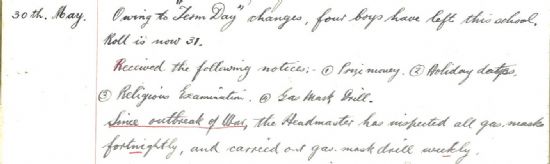 30th. May. Owing to "Term Day" changes, four boys have left this school.
Roll is now 31.
Received the following notices:- ① Prize money. ② Holiday dates.
③ Religious Examination. ④ Gas Mask Drill.
Since outbreak of War, the Headmaster has inspected all gas masks
fortnightly, and carried out gas mask drill weekly.